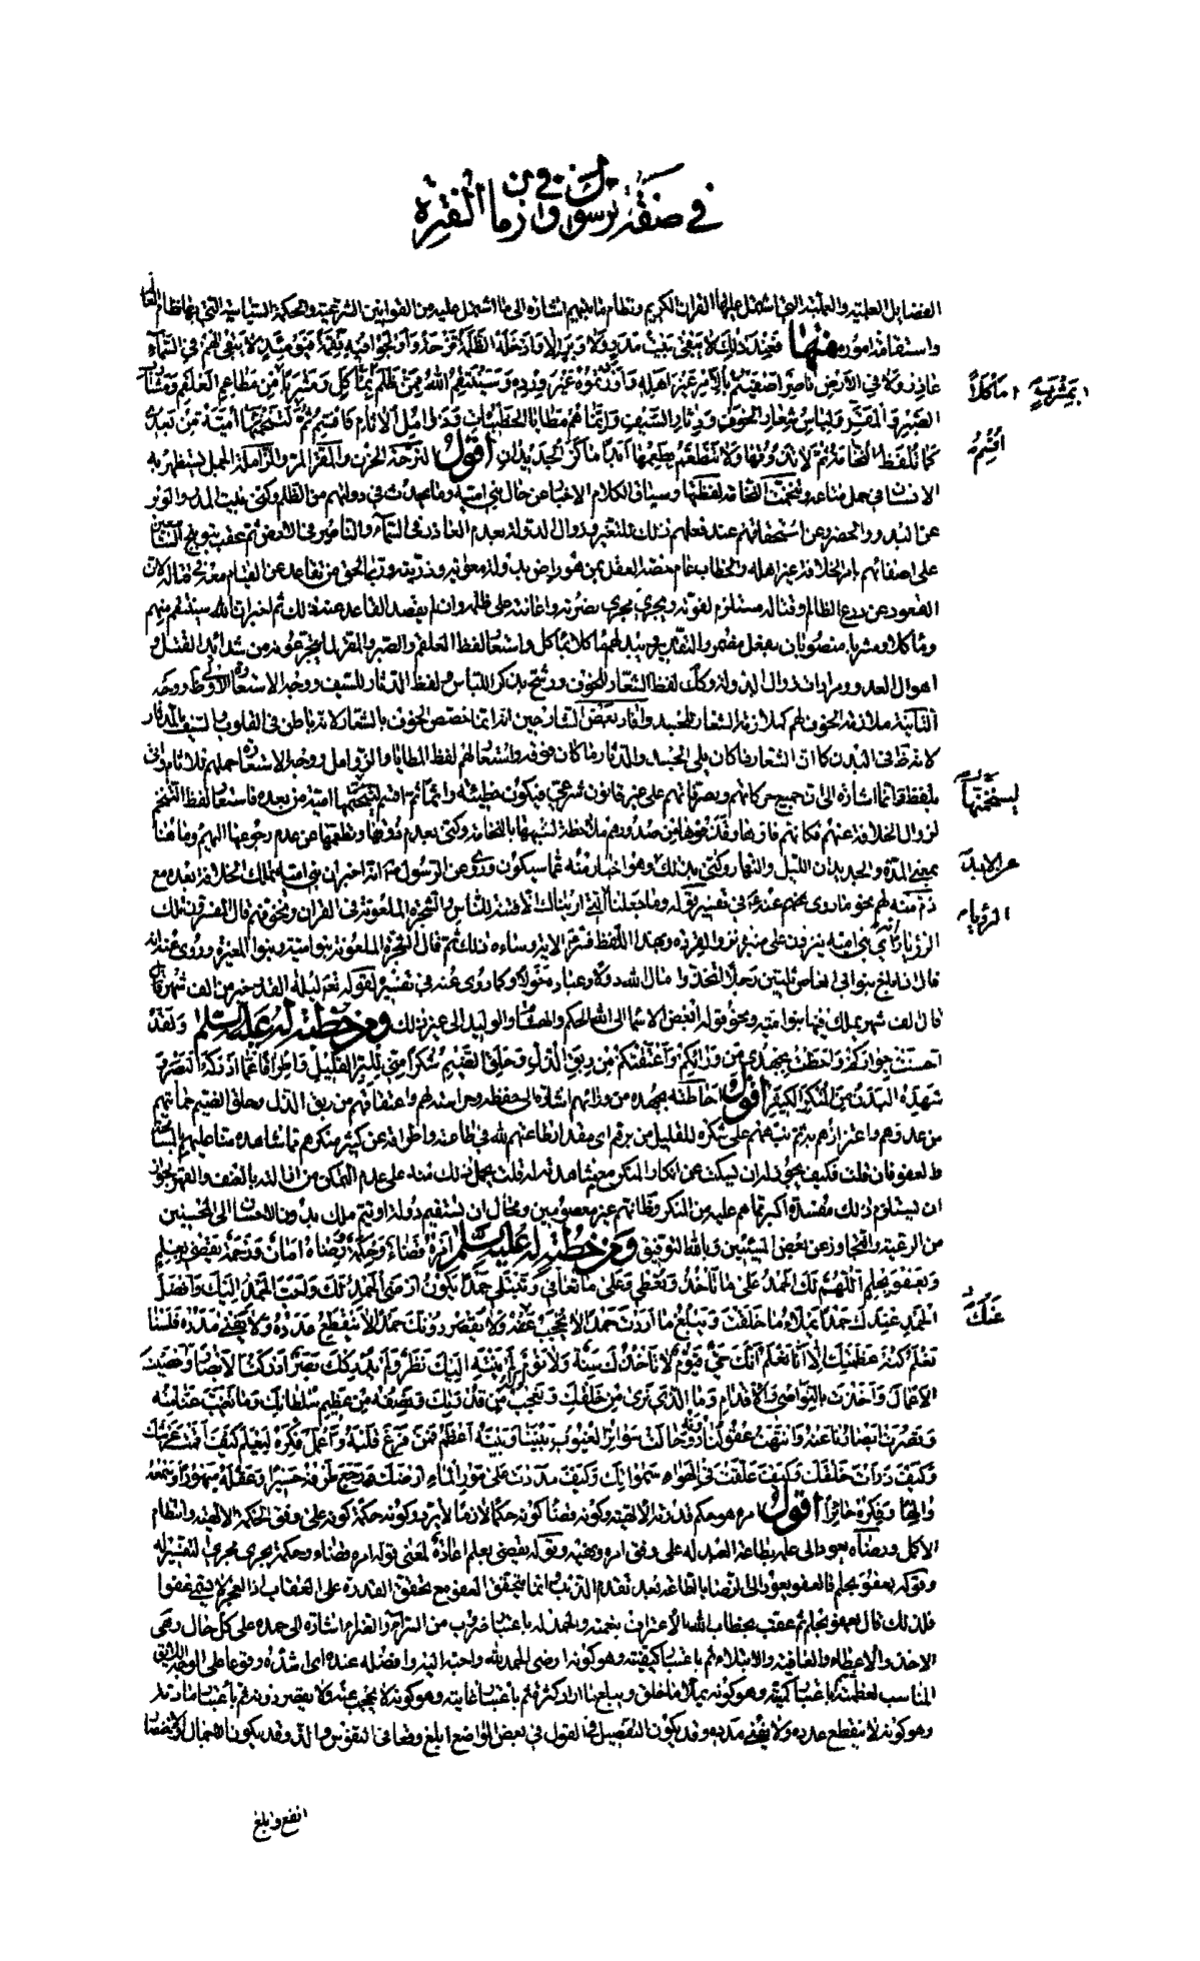 في صفة الرسول في زمان الفترة
الفضايل العلمية والعملية التي اشتمل عليها القران الكريم ونظام ما بينهم اشارة الى ما اشتمل عليه من القوانين الشرعية والحكمة السياسية التي بها نظام العالم
واستقامة اموره منها فعند ذلك لا يبقى بيت مدر ولا وبر الا وادخله الظلمة ترحة واولجوا فيه نقمة فيومئذ لا يبقى لهم في السماء
عاذر ولا في الارض ناصر اصفيتم بالامر غير اهله واوردتموه غير ورده وسينتقم الله ممن ظلم ماكلا بماكل ومشربا بمشرب من مطاعم العلقم ومشارب
الصبر والمقر ولباس شعار الخوف ودثار السيف وانما هم مطايا الخطيئات وزوامل الاثام فاقسم ثم اقسم لتنخمنها امية من بعدي
كما تلفظ النخامة ثم لا تذوقها ولا تتطعم بطعمها ابدا ما كر الجديدان اقول الترحة الحزن والمقر المر والزاملة الجمل يستظهر به
الانسان في حمل متاعه وتنخمت النخامة لفظتها وسياق الكلام الاخبار عن حال بني امية وما يحدث في دولتهم من الظلم وكنى ببيت المدر والوبر
عن البدو والحضر وعن استحقاقهم عند فعلهم ذلك للتغير وزوال الدولة بعدم العاذر في السماء والناصر في الارض ثم عقب بتوبيخ السامعين
على اصفائهم بامر الخلافة غير اهله والخطاب عام
القعود عن ردع الظالم وقتاله مستلزم لقوته ويجري مجرى نصرته واعانته على ظلمه وان لم يقصد القاعد عنه ذلك ثم اخبر ان الله سينتقم منهم
وماكلا ومشربا منصوبان بفعل مضمر والتقدير ويبدلهم ماكلا بماكل واستعار لفظ العلقم والصبر والمقر لما يتجرعونه من شدائد القتل و
اهوال العدو ومرارات زوال الدولة وكذلك لفظ الشعار للخوف ورشح بذكر اللباس ولفظ الدثار للسيف ووجه الاستعارة الاولى ظ ووجه
الثانية ملازمة الخوف لهم كملازمة الشعار للجسد واشار بعض الشارحين انه انما خصص الخوف بالشعار لانه باطن في القلوب والسيف بالدثار
لانه ظ في البدن كما ان الشعار ما كان يلي الجسد والدثار ما كان فوقه واستعار لهم لفظ المطايا والزوامل ووجه الاستعارة حملهم للاثام واتى
بلفظ انما اشارة الى ان جميع حركاتهم وتصرفاتهم على غير قانون شرعي فيكون خطيئة واثما ثم اقسم لتنخمنها امية من بعده فاستعار لفظ التنخم
لزوال الخلافة عنهم فكانهم قاءوها وقذفوها من صدورهم ملاحظة لشبهها بالنخامة وكنى بعدم ذوقها وتطعمها عن عدم رجوعها اليهم وما هنا
بمعنى المدة والجديدان الليل والنهار وكنى بذلك عن الابد وهو اخبار منه عما سيكون وروي عن الرسول ص انه اخبر ان بني امية تملك الخلافة بعده مع
ذم منه لهم نحو ما روي عنه في تفسير قوله وما جعلنا الرؤيا التي اريناك الا فتنة للناس والشجرة الملعونة في القران ونخوفهم قال المفسرون تلك
الرؤيا انه راى بني امية ينزون على منبره نزو القردة وبهذا اللفظ فسر الاية وساءه ذلك ثم قال الشجرة الملعونة بنو امية وبنو المغيرة وروي عنه انه
قال اذا بلغ بنو ابي العاص ثلثين رجلا اتخذوا مال الله دولا وعباده خولا وكما روي عنه في تفسير لقوله تعالى ليلة القدر خير من الف شهر قال
قال الف شهر يملك فيها بنو امية ونحو قوله ابغض الاسماء الى الله الحكم وهشام والوليد الى غير ذلك ومن خطبة له عليه السلام ولقد
احسنت جواركم واحطت بجهدي من ورائكم واعتقتكم من ربق الذل وحلق الضيم شكرا مني للبر القليل واطراقا عما ادركه البصر و
شهده البدن من المنكر الكثير اقول احاطته بجهده من ورائهم اشارة الى حفظه وحراسته لهم واعتاقهم من ربق الذل وحلق الضيم حمايتهم
من عدوهم واعزازهم به ثم نبههم على شكره للقليل من برهم اي مقدار طاعتهم لله في طاعته واطراقه عن كثير منكرهم مما شاهده
فان قلت فكيف يجوز له ان يسكت عن انكار المنكر مع مشاهدته له قلت يحمل ذلك منه على عدم التمكن من ازالته بالعنف والقهر لجواز
ان يستلزم ذلك مفسدة اكبر مما هم عليه من المنكر وظ انهم غير معصومين ومحال ان تستقيم دولة او تتم ملك بدون الاحسان الى المحسنين
من الرعية والتجاوز عن بعض المسيئين وبالله التوفيق ومن خطبة له عليه السلام امره قضاء وحكمة ورضاه امان ورحمة يقضي بعلم
ويعفو بحلم اللهم لك الحمد على ما تاخذ وتعطي وعلى ما تعافي وتبتلي حمدا يكون ارضى الحمد لك واحب الحمد اليك وافضل
الحمد عندك حمدا يملاء ما خلقت ويبلغ ما اردت حمدا لا يحجب عنك ولا يقصر دونك حمدا لا ينقطع عدده ولا يفنى مدده فلسنا
نعلم كنه عظمتك الا انا نعلم انك حي قيوم لا تاخذك سنة ولا نوم لم ينته اليك نظر ولم يدركك بصر ادركت الابصار واحصيت
الاعمال واخذت بالنواصي والاقدام وما الذي نرى من خلقك ونعجب له من قدرتك ونصفه من عظيم سلطانك وما تغيب عنا منه
وقصرت ابصارنا عنه وانتهت عقولنا دونه وحالت سواتر الغيوب بيننا وبينه اعظم فمن فرغ قلبه واعمل فكره ليعلم كيف اقمت عرشك
وكيف ذرات خلقك وكيف علقت في الهواء سمواتك وكيف مددت على مور الماء ارضك رجع طرفه حسيرا وعقله مبهورا وسمعه
والها وفكره حائرا اقول امره هو حكم قدرته الالهية وكونه قضاء كونه حكما لازما لا يرد وكونه حكمة كونه على وفق الحكمة الالهية وانتظام
الاكمل ورضاه يعود الى علمه بطاعة العبد له على وفق امره ونهيه وقوله يقضي بعلم اعادة لمعنى قوله امره قضاء وحكمة يجري مجرى التفسير له
وقوله يعفو بحلم فالعفو يعود الى الرضا بالطاعة بعد تقدم الذنب وانما يتحقق العفو مع تحقق القدرة على العقاب اذ العجز لا يسمى عفوا
فلذلك قال يعفو بحلم ثم عقب بخطاب الله بالاعتراف بنعمه والحمد له باعتبار ضروب من السراء والضراء اشارة الى حمده على كل حال وهي
الاخذ والاعطاء والعافية والابتلاء ثم باعتبار كيفيته وهو كونه ارضى الحمد لله واحبه اليه وافضله عنده اي اشده وقوعا على الوجه اللائق
المناسب لعظمته ثم باعتبار كميته وهو كونه يملاء ما خلق ويبلغ ما اراد كثرة ثم باعتبار غايته وهو كونه لا يحجب عنه ولا يقصر دونه ثم باعتبار مادته
وهو كونه لا ينقطع عدده ولا يفنى مدده وقد يكون التفصيل في القول في بعض المواضع ابلغ وقعا في النفوس والذ وقد يكون الاجمال والاختصار
ماكلا بمشرب
اقسم
لتنخمنها
عن الابد
الرؤيا
عنك
انفع وابلغ